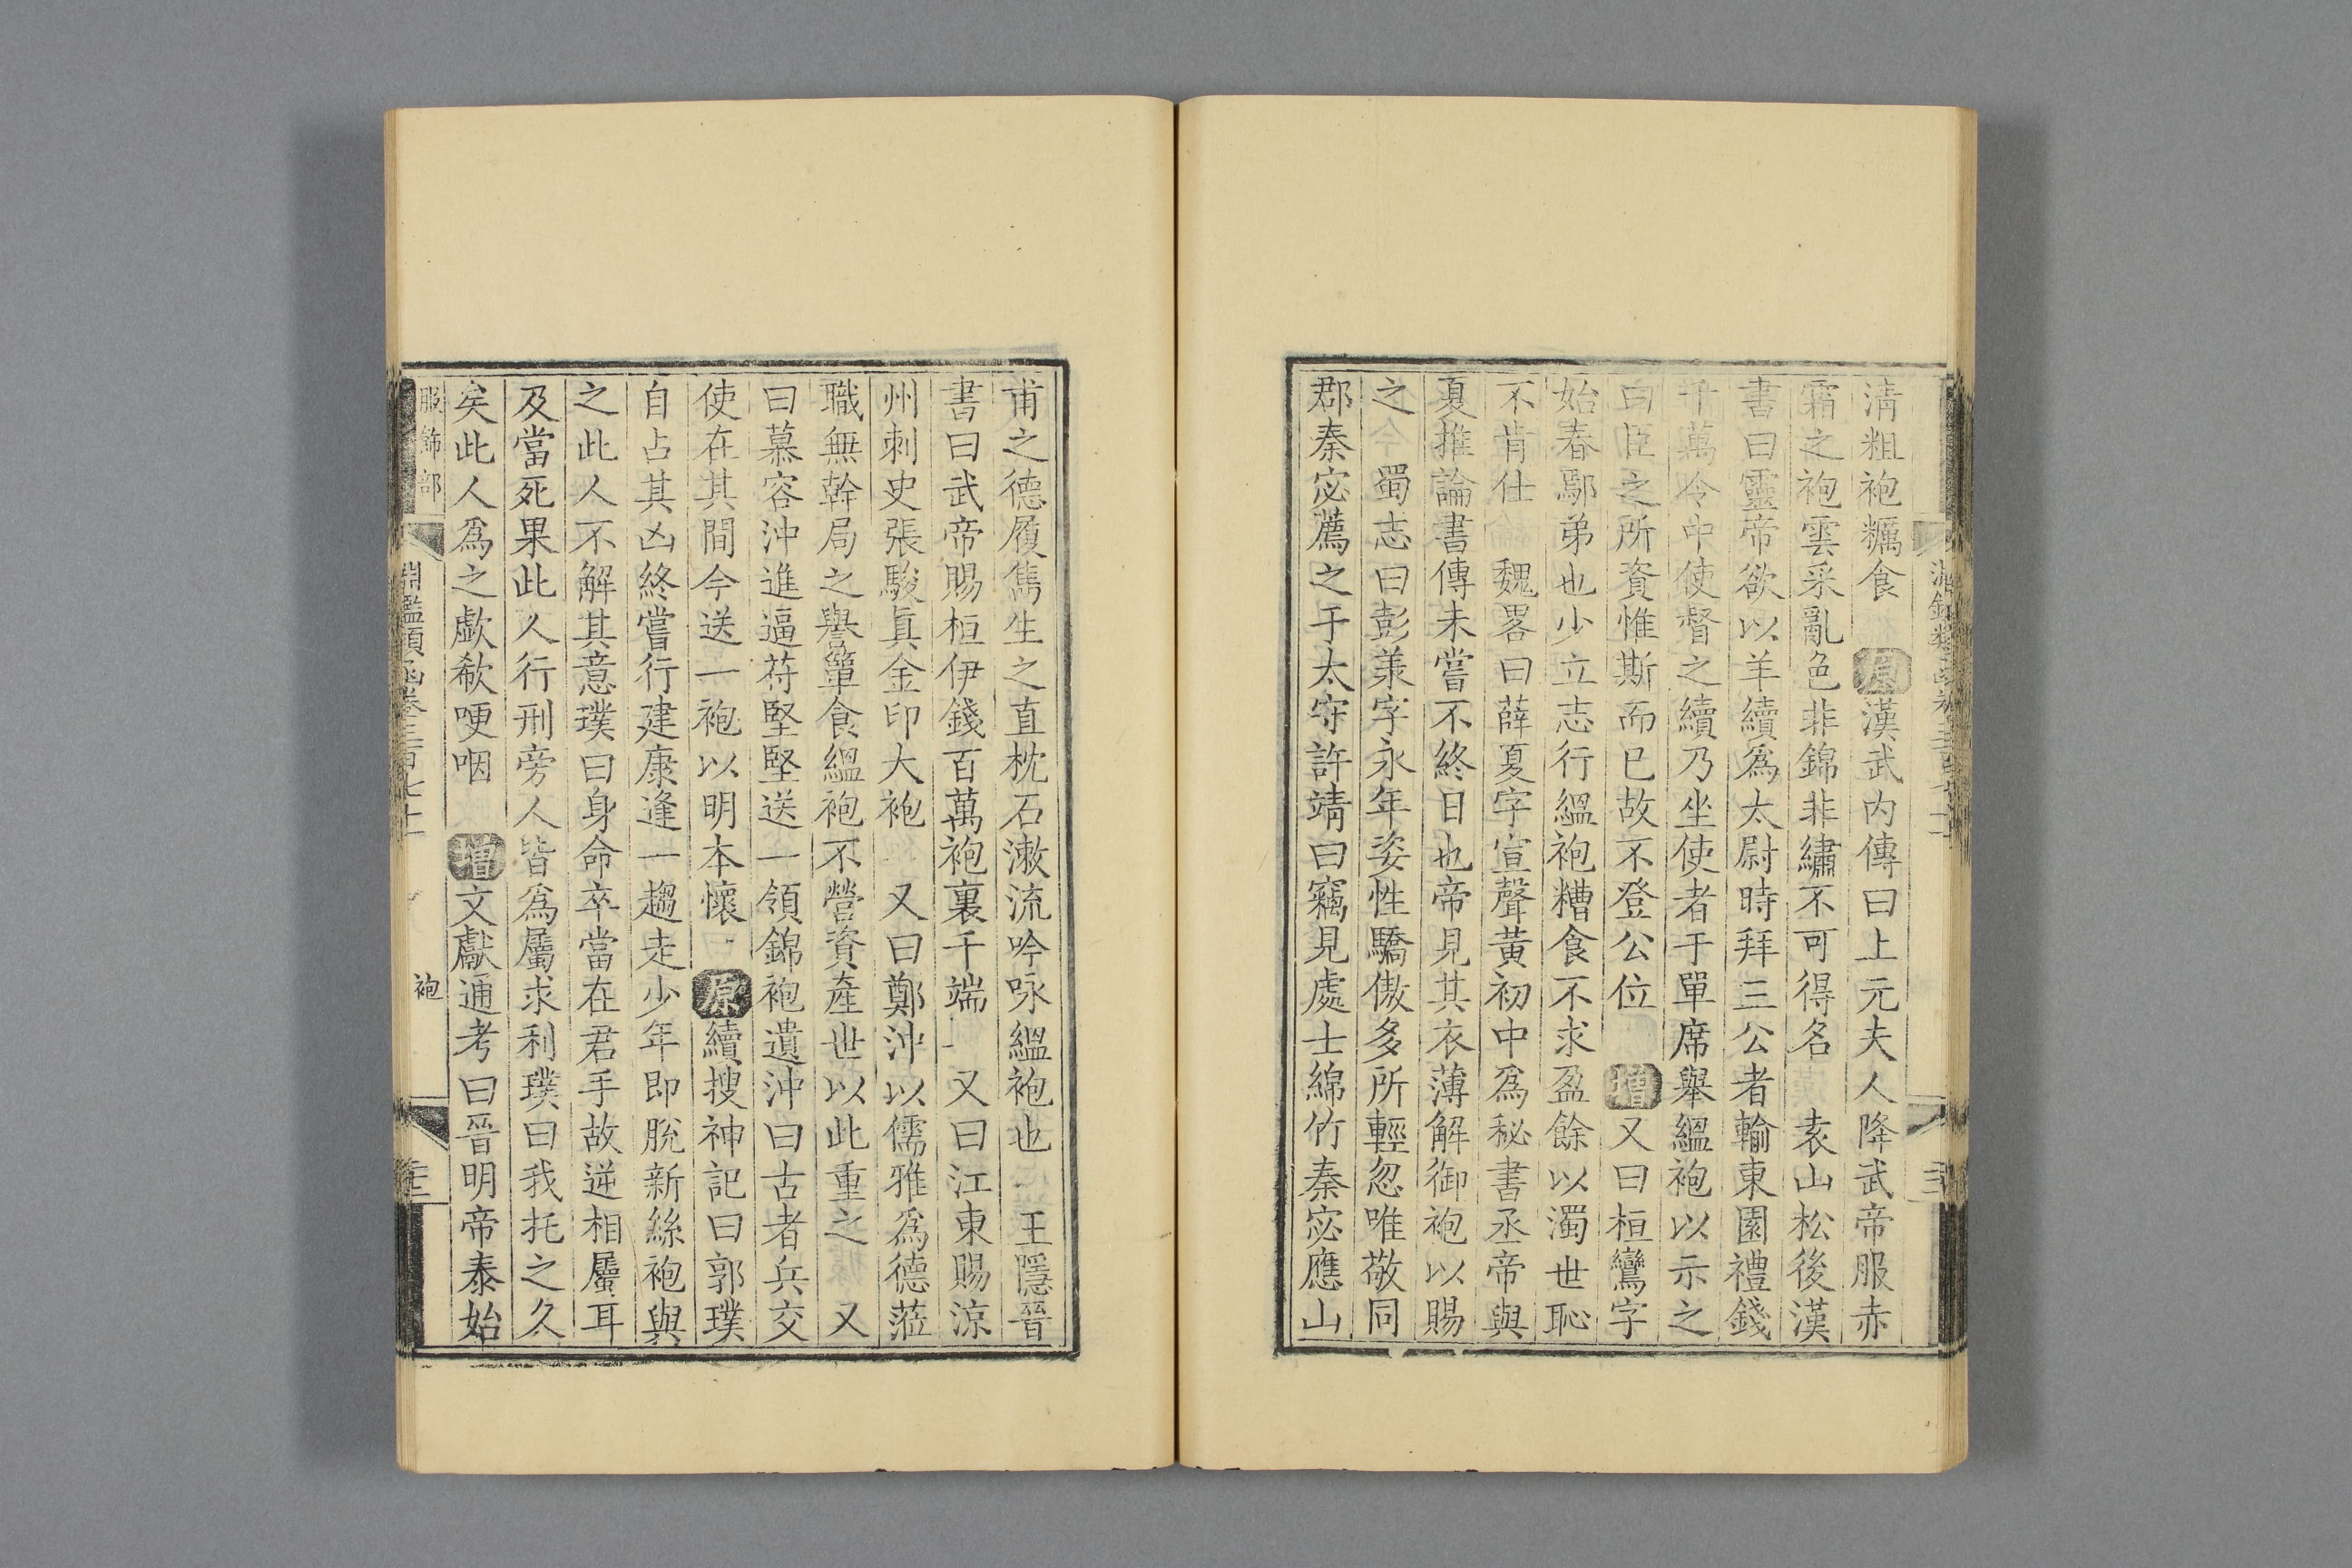 清粗袍糲食 原漢武内傳曰上元夫人降武帝服赤
霜之袍雲采亂色非錦非繡不可得名 袁山松後漢
書曰靈帝欲以羊續爲太尉時拜三公者輸東園禮錢
千萬令中使督之續乃坐使者于單席舉緼袍以示之
曰臣之所資惟斯而已故不登公位 增又曰桓鸞字
始春鄢弟也少立志行緼袍糟食不求盈餘以濁世恥
不肯仕 魏畧曰薛夏字宣聲黃初中爲秘書丞帝與
夏推論書傳未嘗不終日也帝見其衣薄解御袍以賜
之 蜀志曰彭羕字永年姿性驕傲多所輕忽唯敬同
郡秦宓薦之于太守許靖曰竊見處士綿竹秦宓應山
甫之德履雋生之直枕石漱流吟咏緼袍也 王隱晉
書曰武帝賜桓伊錢百萬袍裏千端 又曰江東賜涼
州刺史張駿眞金印大袍 又曰鄭沖以儒雅爲德蒞
職無幹局之譽簞食緼袍不營資產世以此重之 又
曰慕容沖進逼苻堅堅送一領錦袍遺沖曰古者兵交
使在其間今送一袍以明本懷 原續搜神記曰郭璞
自占其凶終嘗行建康逢一趨走少年即脫新絲袍與
之此人不解其意璞曰身命卒當在君手故逆相屬耳
及當死果此人行刑旁人皆爲屬求利璞曰我托之久
矣此人爲之歔欷哽咽 增文獻通考曰晉明帝泰始
服飾部 淵鑑類函卷三百七十一 袍